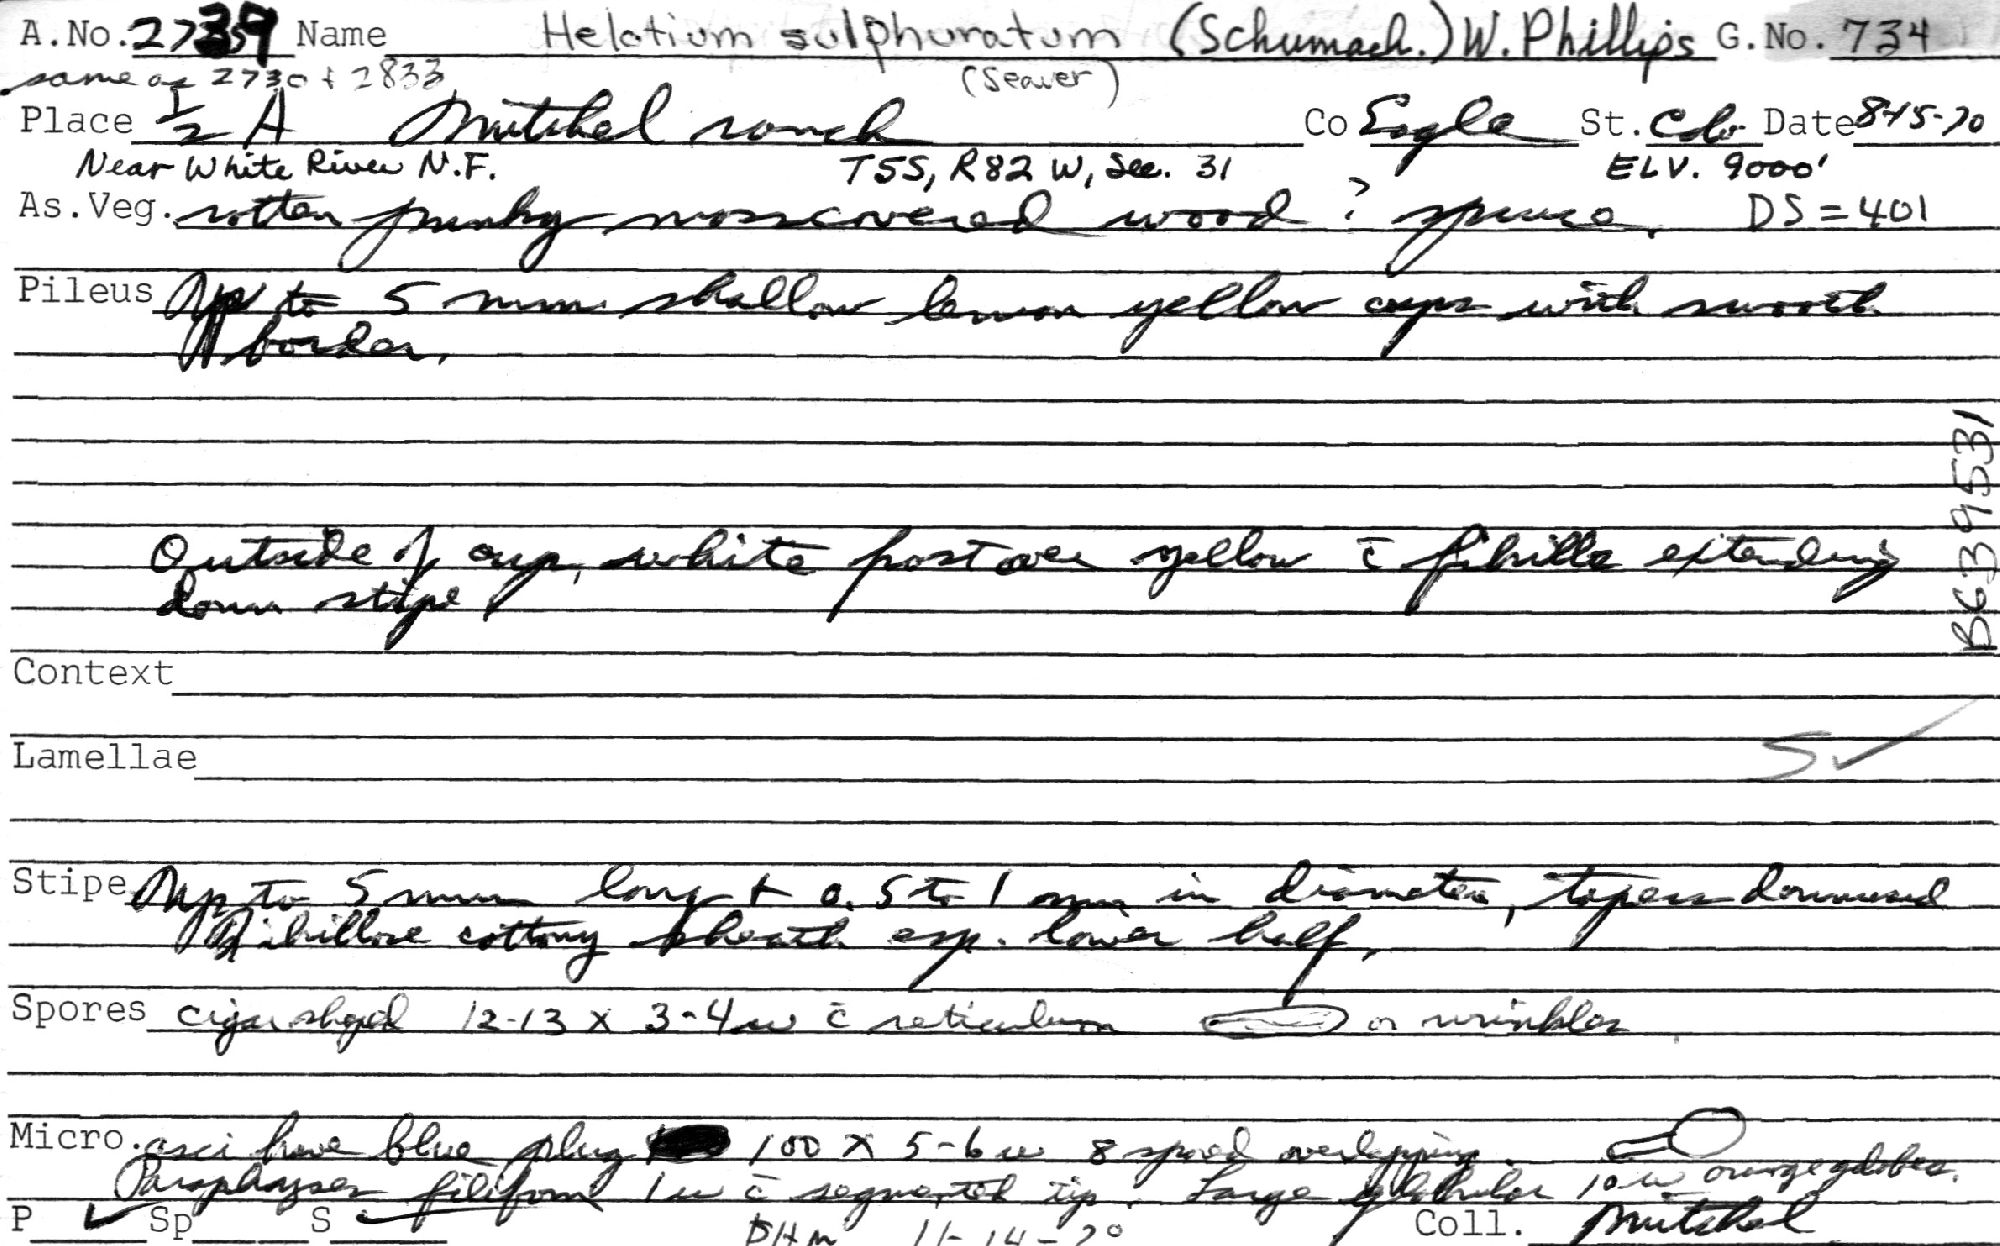 A.No. 2739 Name Helotium sulphuratum (Schumach.) W. Phillips G.No. 734
same as 2730 & 2833 (Seaver)
Place 1/2 A Mitchel ranch Co Eagle St. Colo. Date 8-15-70
Near White River N.F. T5S, R82W, Sec. 31 ELV. 9000'
As.Veg. rotten punky mosscovered wood ? spruce. DS = 401
Pileus Up to 5 mm shallow lemon yellow cups with smooth
border.
Outside of cup, white frost over yellow c̄ fibrills extending
down stipe
B639531
Context
Lamellae
S✓
Stipe Up to 5 mm long + 0.5 to 1 mm in diameter, tapers downward
Fibrillose cottony sheath esp. lower half,
Spores cigar shaped 12-13 x 3-4 u c̄ reticulum or wrinkles
Micro. asci have blue plug 100 x 5-6 u 8 spored overlapping.
Paraphyses filiform 1 u c̄ segmented tip. Large globular 10 u orange globes.
P ✓ Sp S ✓ DHM 11-14-70 Coll. Mitchel